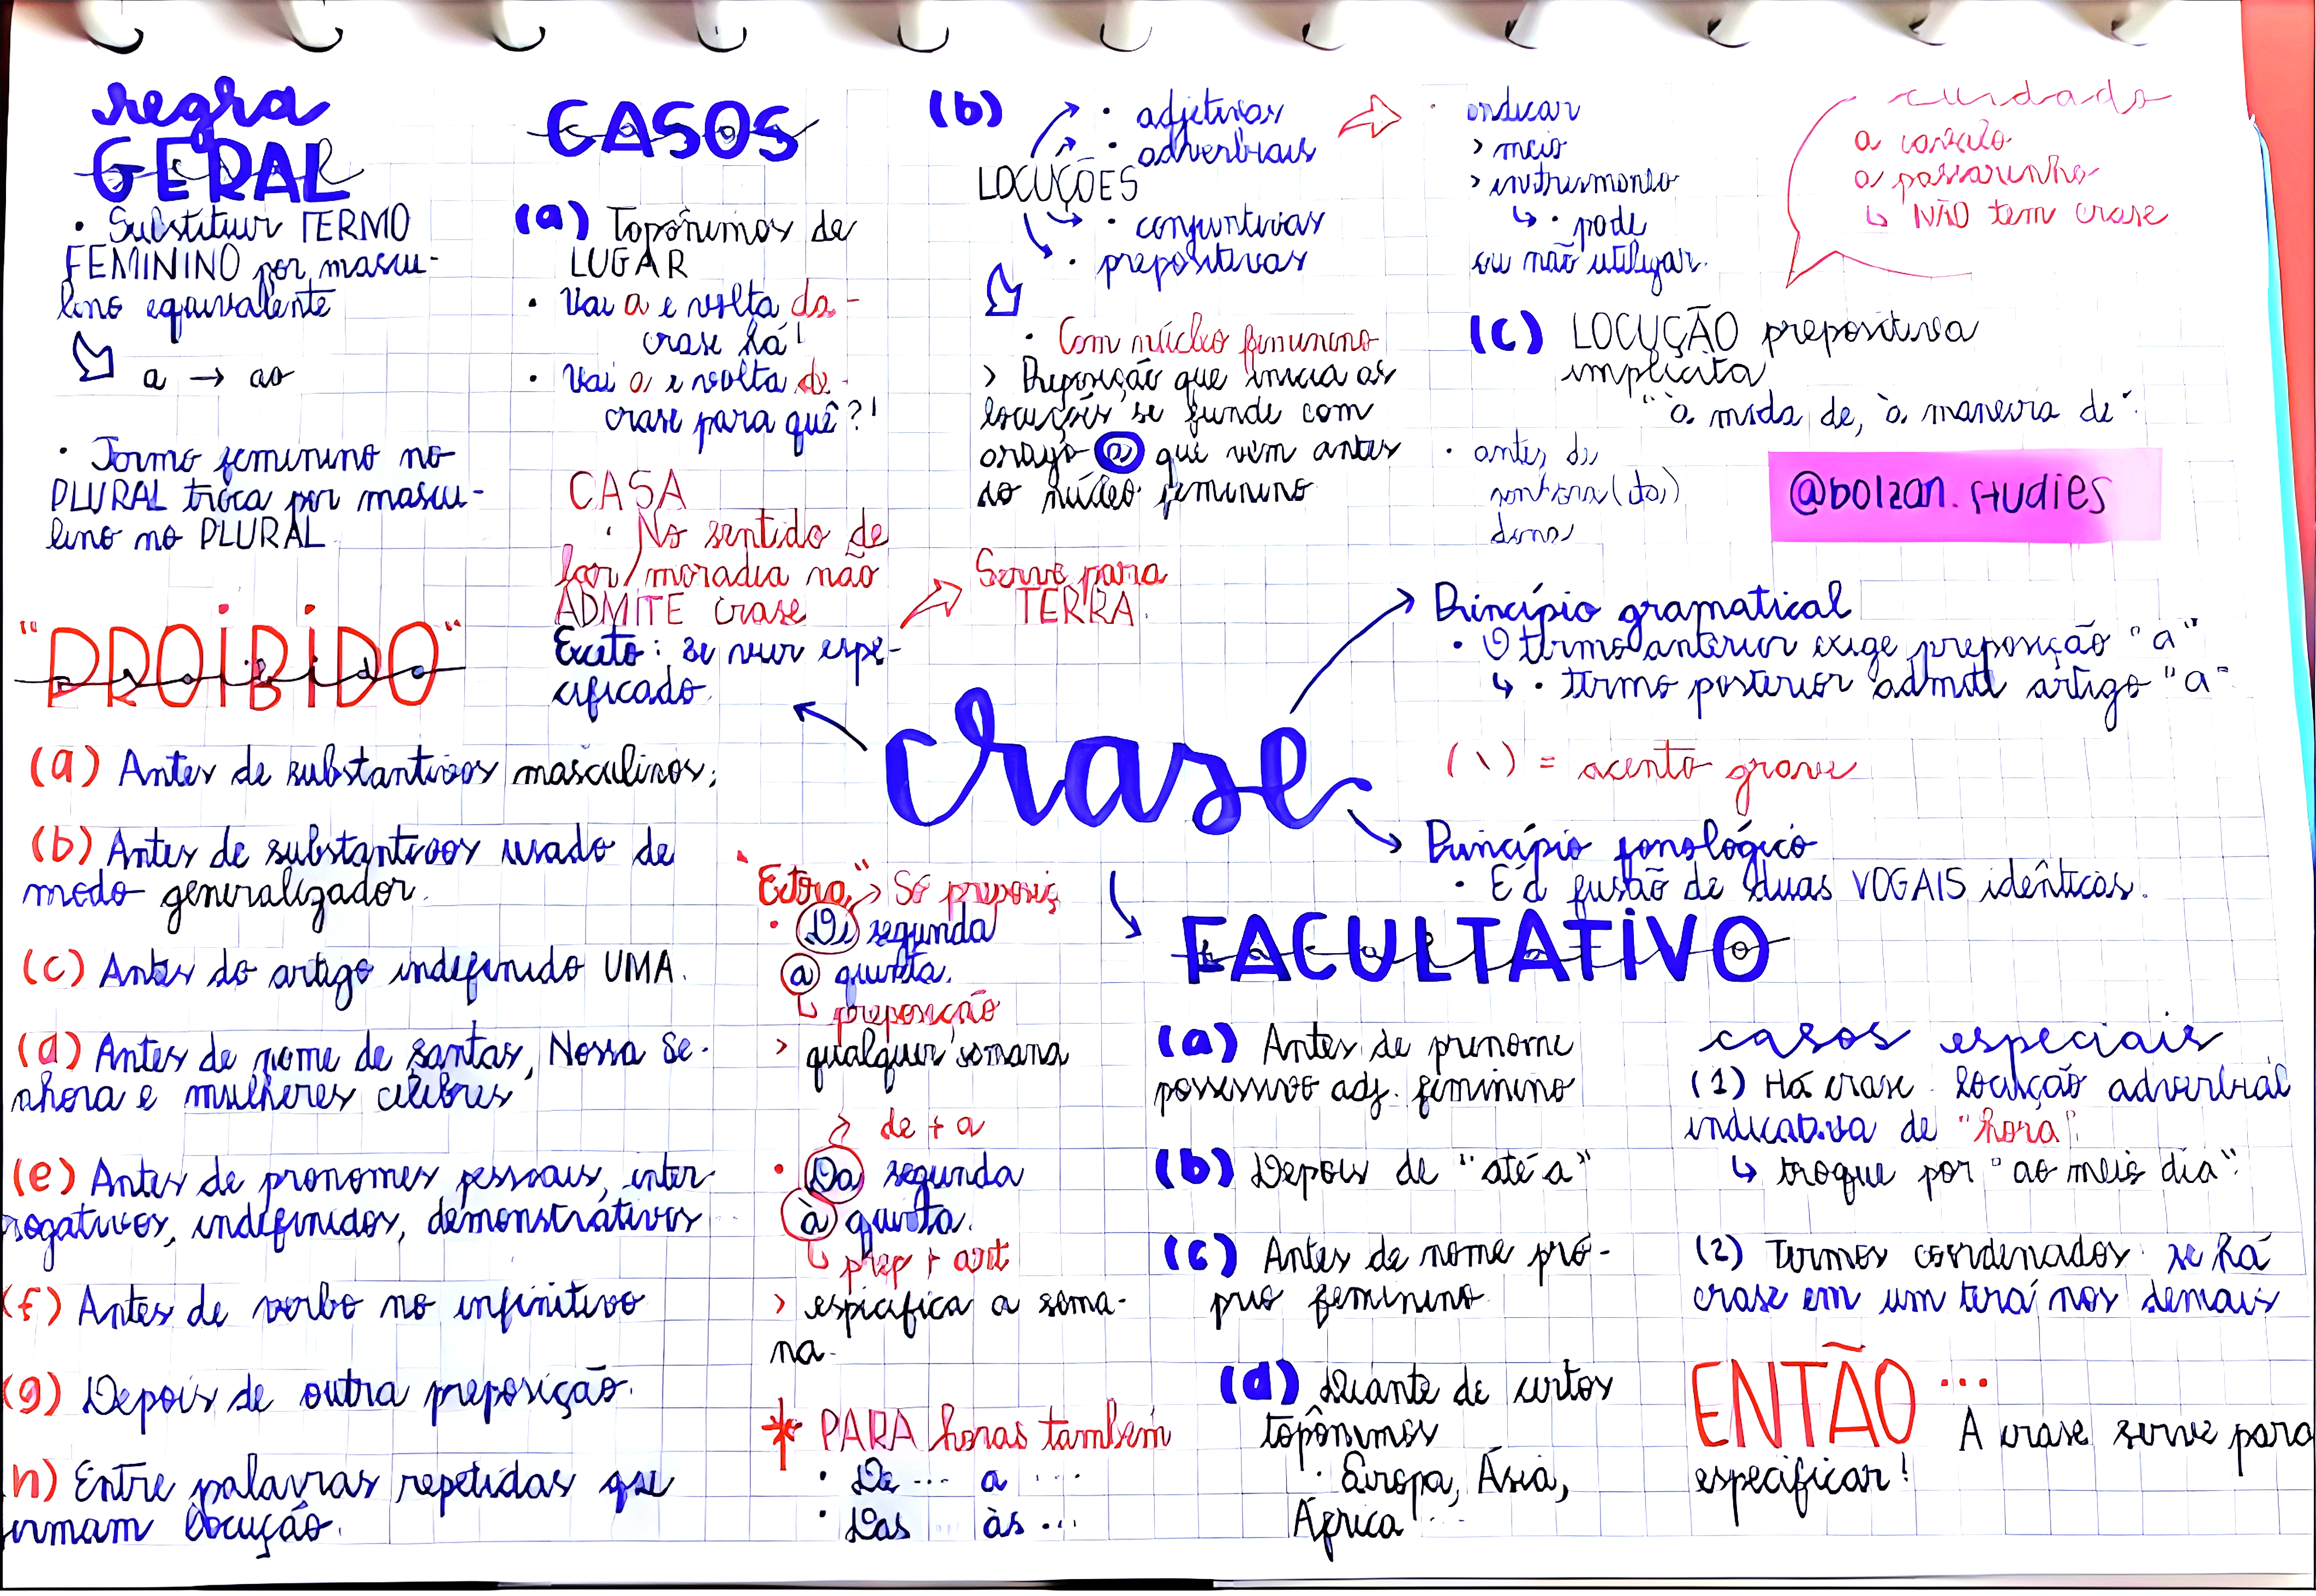 regra
GERAL
• Substituir TERMO
FEMININO por mascu-
lino equivalente
a → ao
• Termo feminino no
PLURAL troca por mascu-
lino no PLURAL.
"PROIBIDO"
(a) Antes de substantivos masculinos;
(b) Antes de substantivos usado de
modo generalizador.
(c) Antes do artigo indefinido UMA.
(d) Antes de nome de santas, Nossa Se-
nhora e mulheres célebres
(e) Antes de pronomes pessoais, inter-
rogativos, indefinidos, demonstrativos
(f) Antes de verbo no infinitivo
(g) Depois de outra preposição.
h) Entre palavras repetidas que
ormam locução.
CASOS
(a) Topônimos de
LUGAR
• Vai a e volta da -
crase há!
• Vai a e volta de -
crase para quê?!
CASA
• No sentido de
lar/moradia não
ADMITE crase
Exceto: se vier espe-
cificado.
→ Serve para
TERRA.
(b)
LOCUÇÕES
• adjetivas
• adverbiais
• conjuntivas
• prepositivas
• indicar
> meio
> instrumento
↳ • pode
ou não utilizar.
cuidado
a
a passarinho
↳ NÃO tem crase
• Com núcleo feminino
> Preposição que inicia as
locuções se funde com
o artigo a que vem antes
do núcleo feminino
(c) LOCUÇÃO prepositiva
implícita
"à moda de, à maneira de".
• antes de
senhora(ita)
dona
@bolzan.studies
crase
Princípio gramatical
• O termo anterior exige preposição "a"
↳ • termo posterior admite artigo "a"
(\) = acento grave
Princípio fonológico
• É a fusão de duas VOGAIS idênticas.
"Extra" → Só preposiç
• De segunda
a quinta.
↳ preposição
> qualquer semana
de + a
• Da segunda
à quinta.
↳ prep + art
> especifica a sema-
na.
* PARA horas também
• De ... a ...
• Das ... às ...
FACULTATIVO
(a) Antes de pronome
possessivo adj. feminino
(b) Depois de "até a"
(c) Antes de nome pró-
prio feminino
(d) Diante de certos
topônimos
• Europa, Ásia,
África ...
casos especiais
(1) Há crase locução adverbial
indicativa de "hora".
↳ troque por "ao meio dia".
(2) Termos coordenados: se há
crase em um terá nos demais
ENTÃO ...
A crase serve para
especificar!